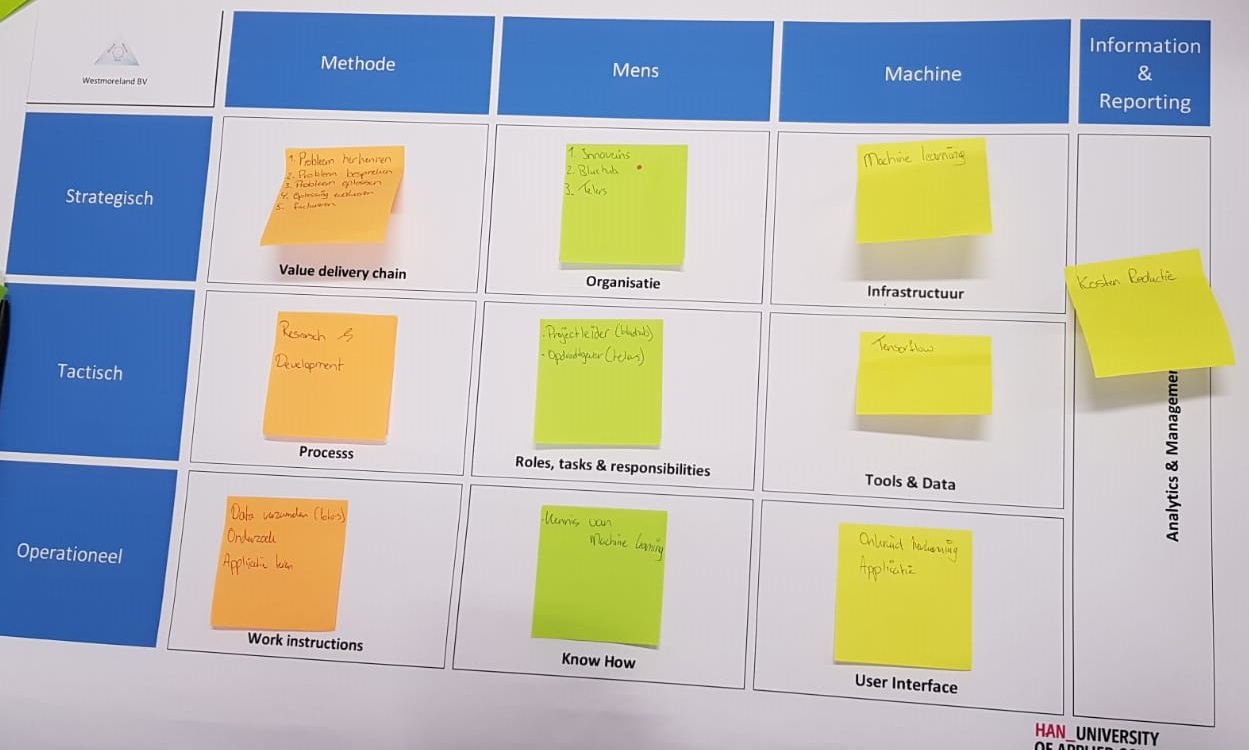 Westmoreland BV
Methode
Mens
Machine
Information
&
Reporting
Strategisch
1. Problem herkennen
2. Problem bespreken
3. Probleem oplossen
4. Oplossing
5. Factureren
Value delivery chain
1. Innoveins
2. Bluehub
3. Telers
Organisatie
Machine learning
Infrastructuur
Kosten Reductie
Tactisch
Research &
Development
Processs
- Projectleider (bluehub)
- Opdrachtgever (telers)
Roles, tasks & responsibilities
Tensorflow
Tools & Data
Analytics & Managemen
Operationeel
Data verzamelen (telers)
Onderzoek
Applicatie
Work instructions
- Kennis van
Machine learning
Know How
Onkruid herkenning
Applicatie
User Interface
HAN_UNIVERSITY
OF APPLIED